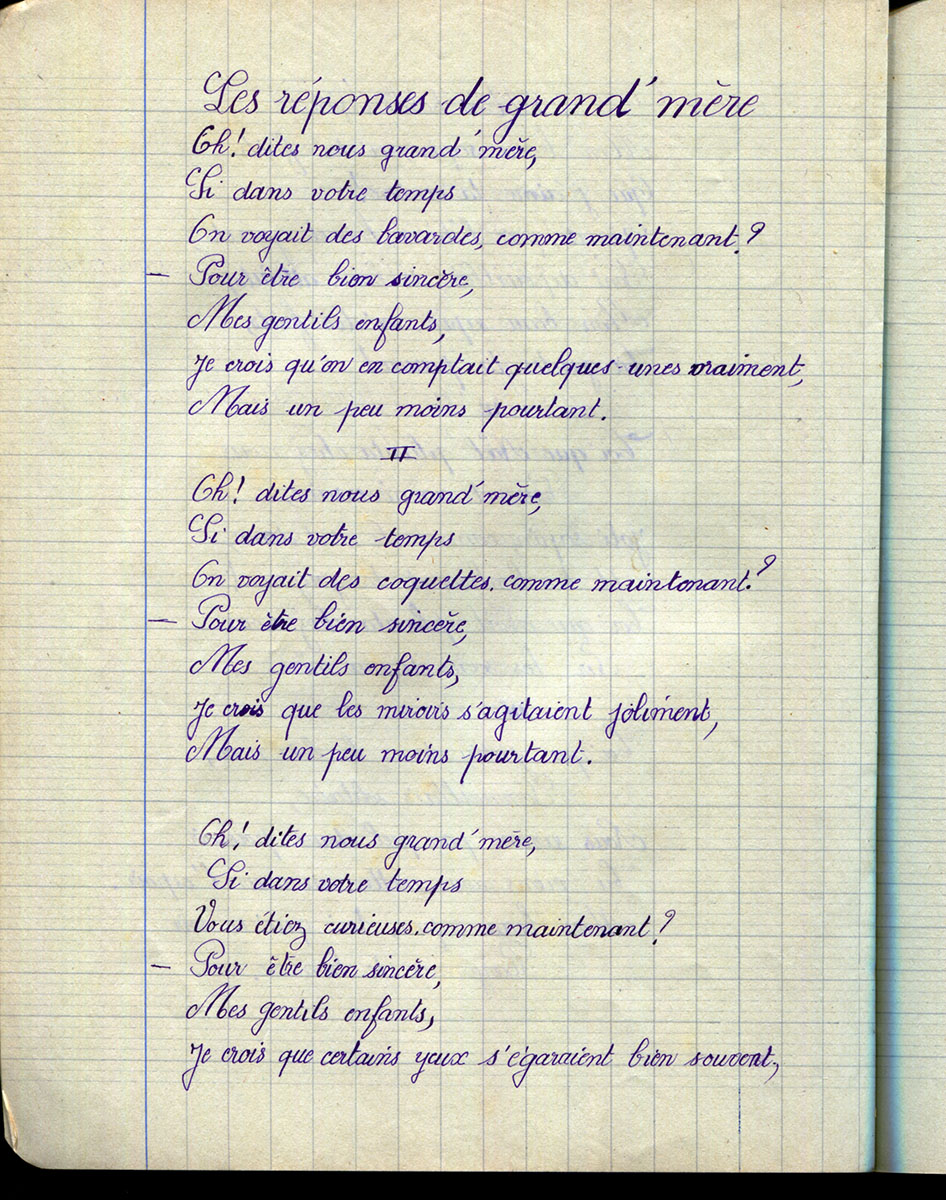 Les réponses de grand'mère
Oh! dites nous grand'mère,
Si dans votre temps
On voyait des bavardes, comme maintenant?
— Pour être bien sincère,
Mes gentils enfants,
Je crois qu'on en comptait quelques-unes vraiment,
Mais un peu moins pourtant.
II
Oh! dites nous grand'mère,
Si dans votre temps
On voyait des coquettes. comme maintenant?
— Pour être bien sincère,
Mes gentils enfants,
Je crois que les miroirs s'agitaient joliment,
Mais un peu moins pourtant.
Oh! dites nous grand'mère,
Si dans votre temps
Vous étiez curieuses. comme maintenant?
— Pour être bien sincère,
Mes gentils enfants,
Je crois que certains yeux s'égaraient bien souvent,